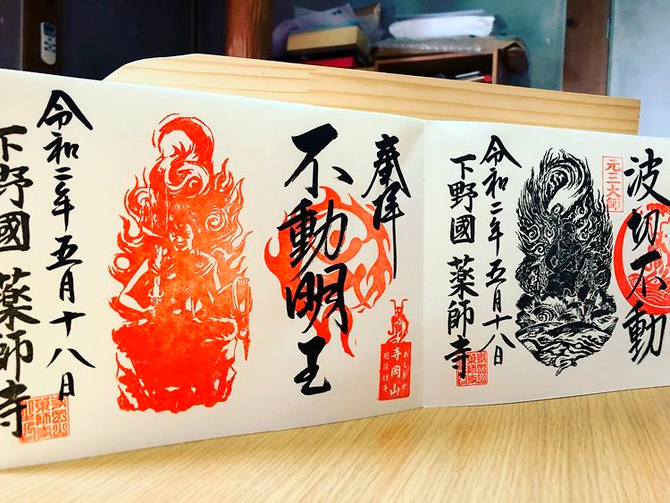 波切不動
元三大師
令和二年五月十八日
下野國 藥師寺
奉拝
不動明王
寺岡山
令和二年五月十八日
下野國 藥師寺